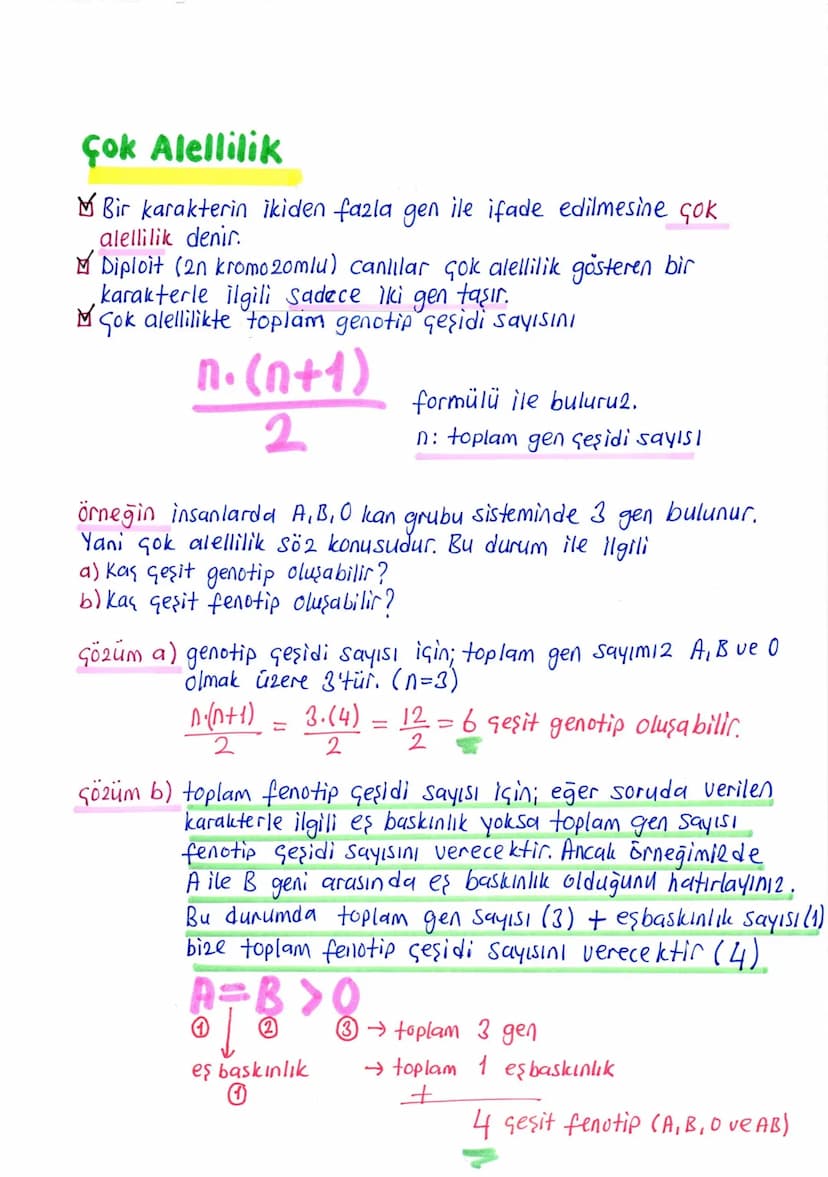 Çok Alellilik
Bir karakterin ikiden fazla gen ile ifade edilmesine çok
alellilik denir.
Diploit (2n kromozomlu) canlılar çok alellilik gösteren bir
karakterle ilgili sadece iki gen taşır.
Çok alellilikte toplam genotip çeşidi sayısını
n.(n+1)
2
formülü ile buluruz.
n: toplam gen çeşidi sayısı
örneğin insanlarda A, B, O kan grubu sisteminde 3 gen bulunur.
Yani çok alellilik söz konusudur. Bu durum ile ilgili
a) Kaç çeşit genotip oluşabilir?
b) Kaç çeşit fenotip oluşabilir?
çözüm a) genotip çeşidi sayısı için; toplam gen sayımız A, B ve O
olmak üzere 3'tür. (n=3)
n.(n+1)/2 = 3.(4)/2 = 12/2 = 6 çeşit genotip oluşabilir.
çözüm b) toplam fenotip çeşidi sayısı için; eğer soruda verilen
karakterle ilgili eş baskınlık yoksa toplam gen sayısı
fenotip çeşidi sayısını verecektir. Ancak örneğimizde
A ile B geni arasında eş baskınlık olduğunu hatırlayınız.
Bu durumda toplam gen sayısı (3) + eşbaskınlık sayısı (1)
bize toplam fenotip çeşidi sayısını verecektir (4)
A = B > O
1 2 3 → toplam 3 gen
eş baskınlık → toplam 1 eşbaskınlık
1 +
4 çeşit fenotip (A, B, O ve AB)